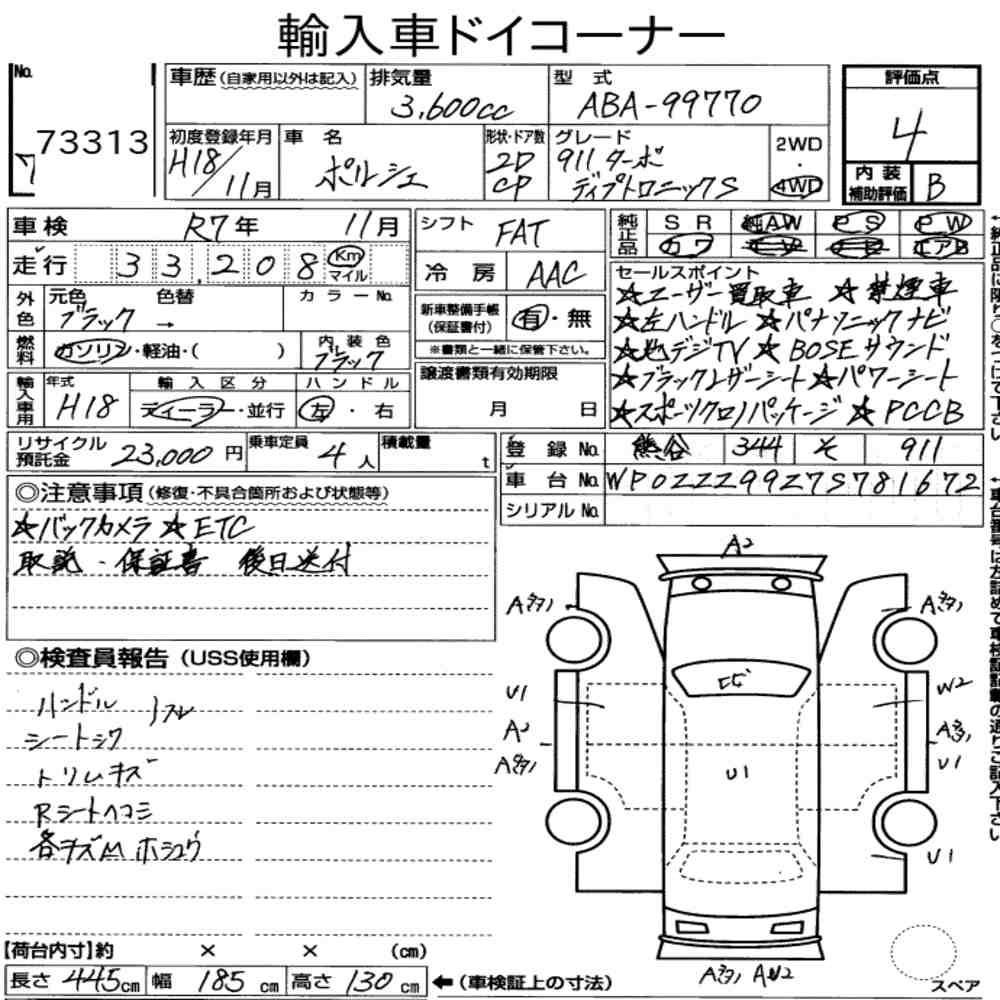 輸入車ドイコーナー
No. 73313
車歴(自家用以外は記入)
排気量 3,600cc
型式 ABA-99770
評価点 4
初度登録年月 H18/11月
車名 ポルシェ
形状・ドア数 2D CP
グレード 911ターボ ティプトロニックS
2WD・4WD
内装補助評価 B
車検 R7年 11月
シフト FAT
純正品 SR 純AW PS PW
カワ エアB
走行 33,208 Km マイル
冷房 AAC
外色 元色 ブラック → 色替 カラーNo.
新車整備手帳(保証書付) 有・無
※書類と一緒に保管下さい。
燃料 ガソリン・軽油・( )
内装色 ブラック
譲渡書類有効期限 月 日
輸入車用 年式 H18
輸入区分 ディーラー・並行
ハンドル 左・右
セールスポイント
☆ユーザー買取車 ☆禁煙車
☆左ハンドル ☆パナソニックナビ
☆地デジTV ☆BOSEサウンド
☆ブラックレザーシート☆パワーシート
☆スポーツクロノパッケージ ☆PCCB
リサイクル預託金 23,000円
乗車定員 4人
積載量 t
登録No. 熊谷 344 そ 911
車台No. WP0ZZZ99Z7S781672
シリアルNo.
◎注意事項(修復・不具合箇所および状態等)
☆バックカメラ ☆ETC
取説・保証書 後日送付
◎検査員報告(USS使用欄)
ハンドル スレ
シートシワ
トリムキズ
Rシートヘコミ
各キズM ホシュウ
A2
A多 A多
U1 W2
A2 A多
A多 U1
U1
U1
A多 AU2
スペア
【荷台内寸】約 × × (cm)
長さ 445cm 幅 185cm 高さ 130cm ←(車検証上の寸法)
↑純正品に限り○をつけて下さい
↑車台番号は左詰めで車検証記載の通りご記入下さい